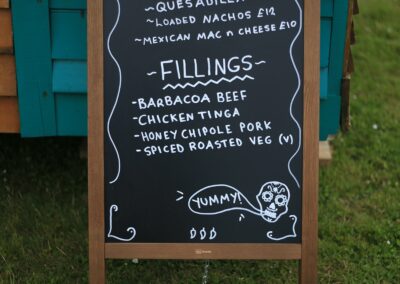 QUESADILLA
~LOADED NACHOS £12
~MEXICAN MAC n CHEESE £10
~FILLINGS~
-BARBACOA BEEF
-CHICKEN TINGA
-HONEY CHIPOLE PORK
-SPICED ROASTED VEG (V)
YUMMY!